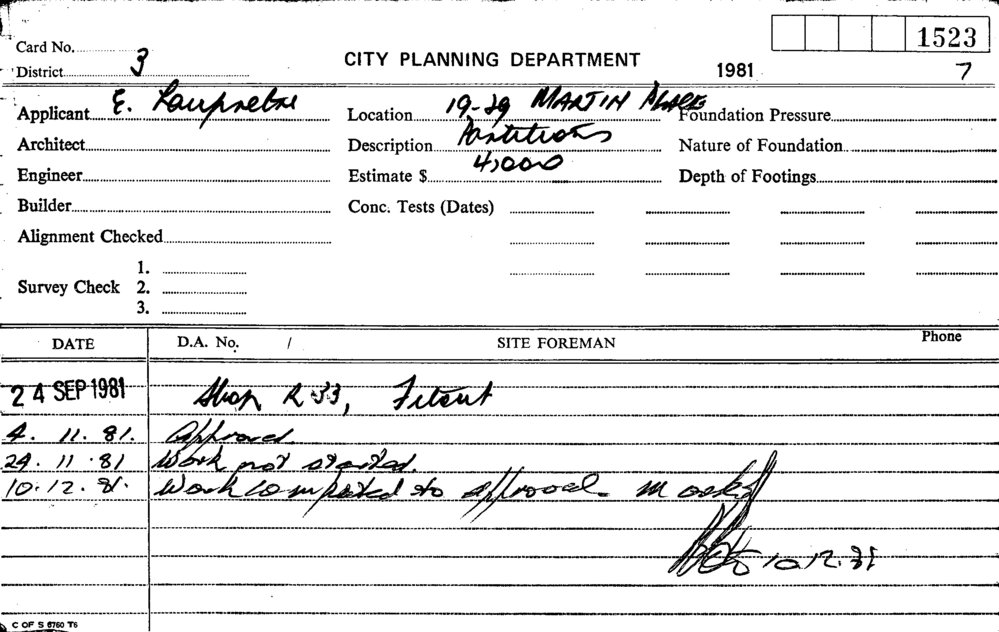 1523
Card No.
District 3
CITY PLANNING DEPARTMENT
1981 7
Applicant E. Location 19-29 MARTIN PLACE Foundation Pressure
Architect Description Partitions Nature of Foundation
Engineer Estimate $ 4,000 Depth of Footings
Builder Conc. Tests (Dates)
Alignment Checked
1.
Survey Check 2.
3.
DATE D.A. No. / SITE FOREMAN Phone
24 SEP 1981 Shop R33, Fitout
4. 11. 81. Approved.
24. 11. 81 Work not started.
10. 12. 81. Work completed to approval.
10.12.81
C OF S 6760 T6